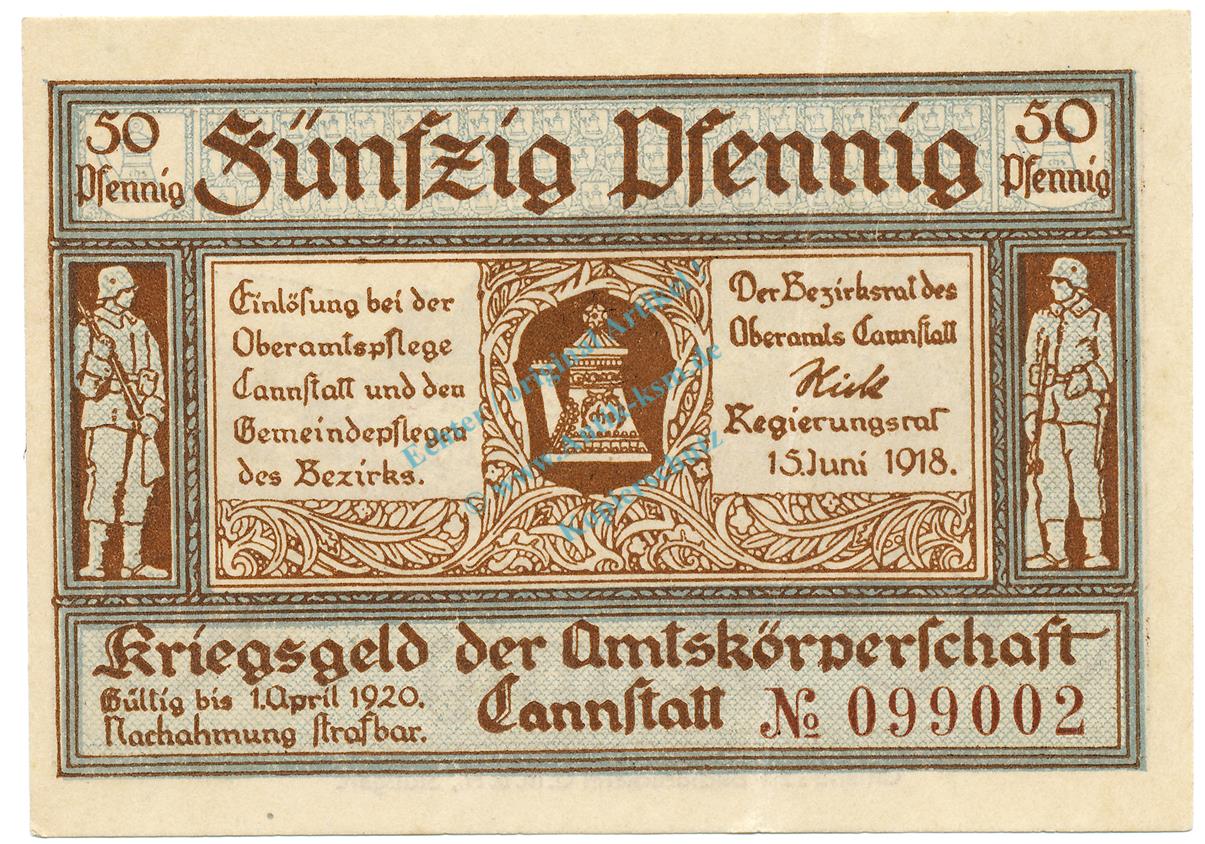 50
Pfennig
Fünfzig Pfennig
50
Pfennig
Einlösung bei der
Oberamtspflege
Cannstatt und den
Gemeindepflegen
des Bezirks.
Der Bezirksrat des
Oberamts Cannstatt
Regierungsrat
15. Juni 1918.
Kriegsgeld der Amtskörperschaft
Gültig bis 1. April 1920.
Nachahmung strafbar.
Cannstatt
№ 099002
Echter / original Artikel:
© www.Antik-ksm.de
Kopierschutz